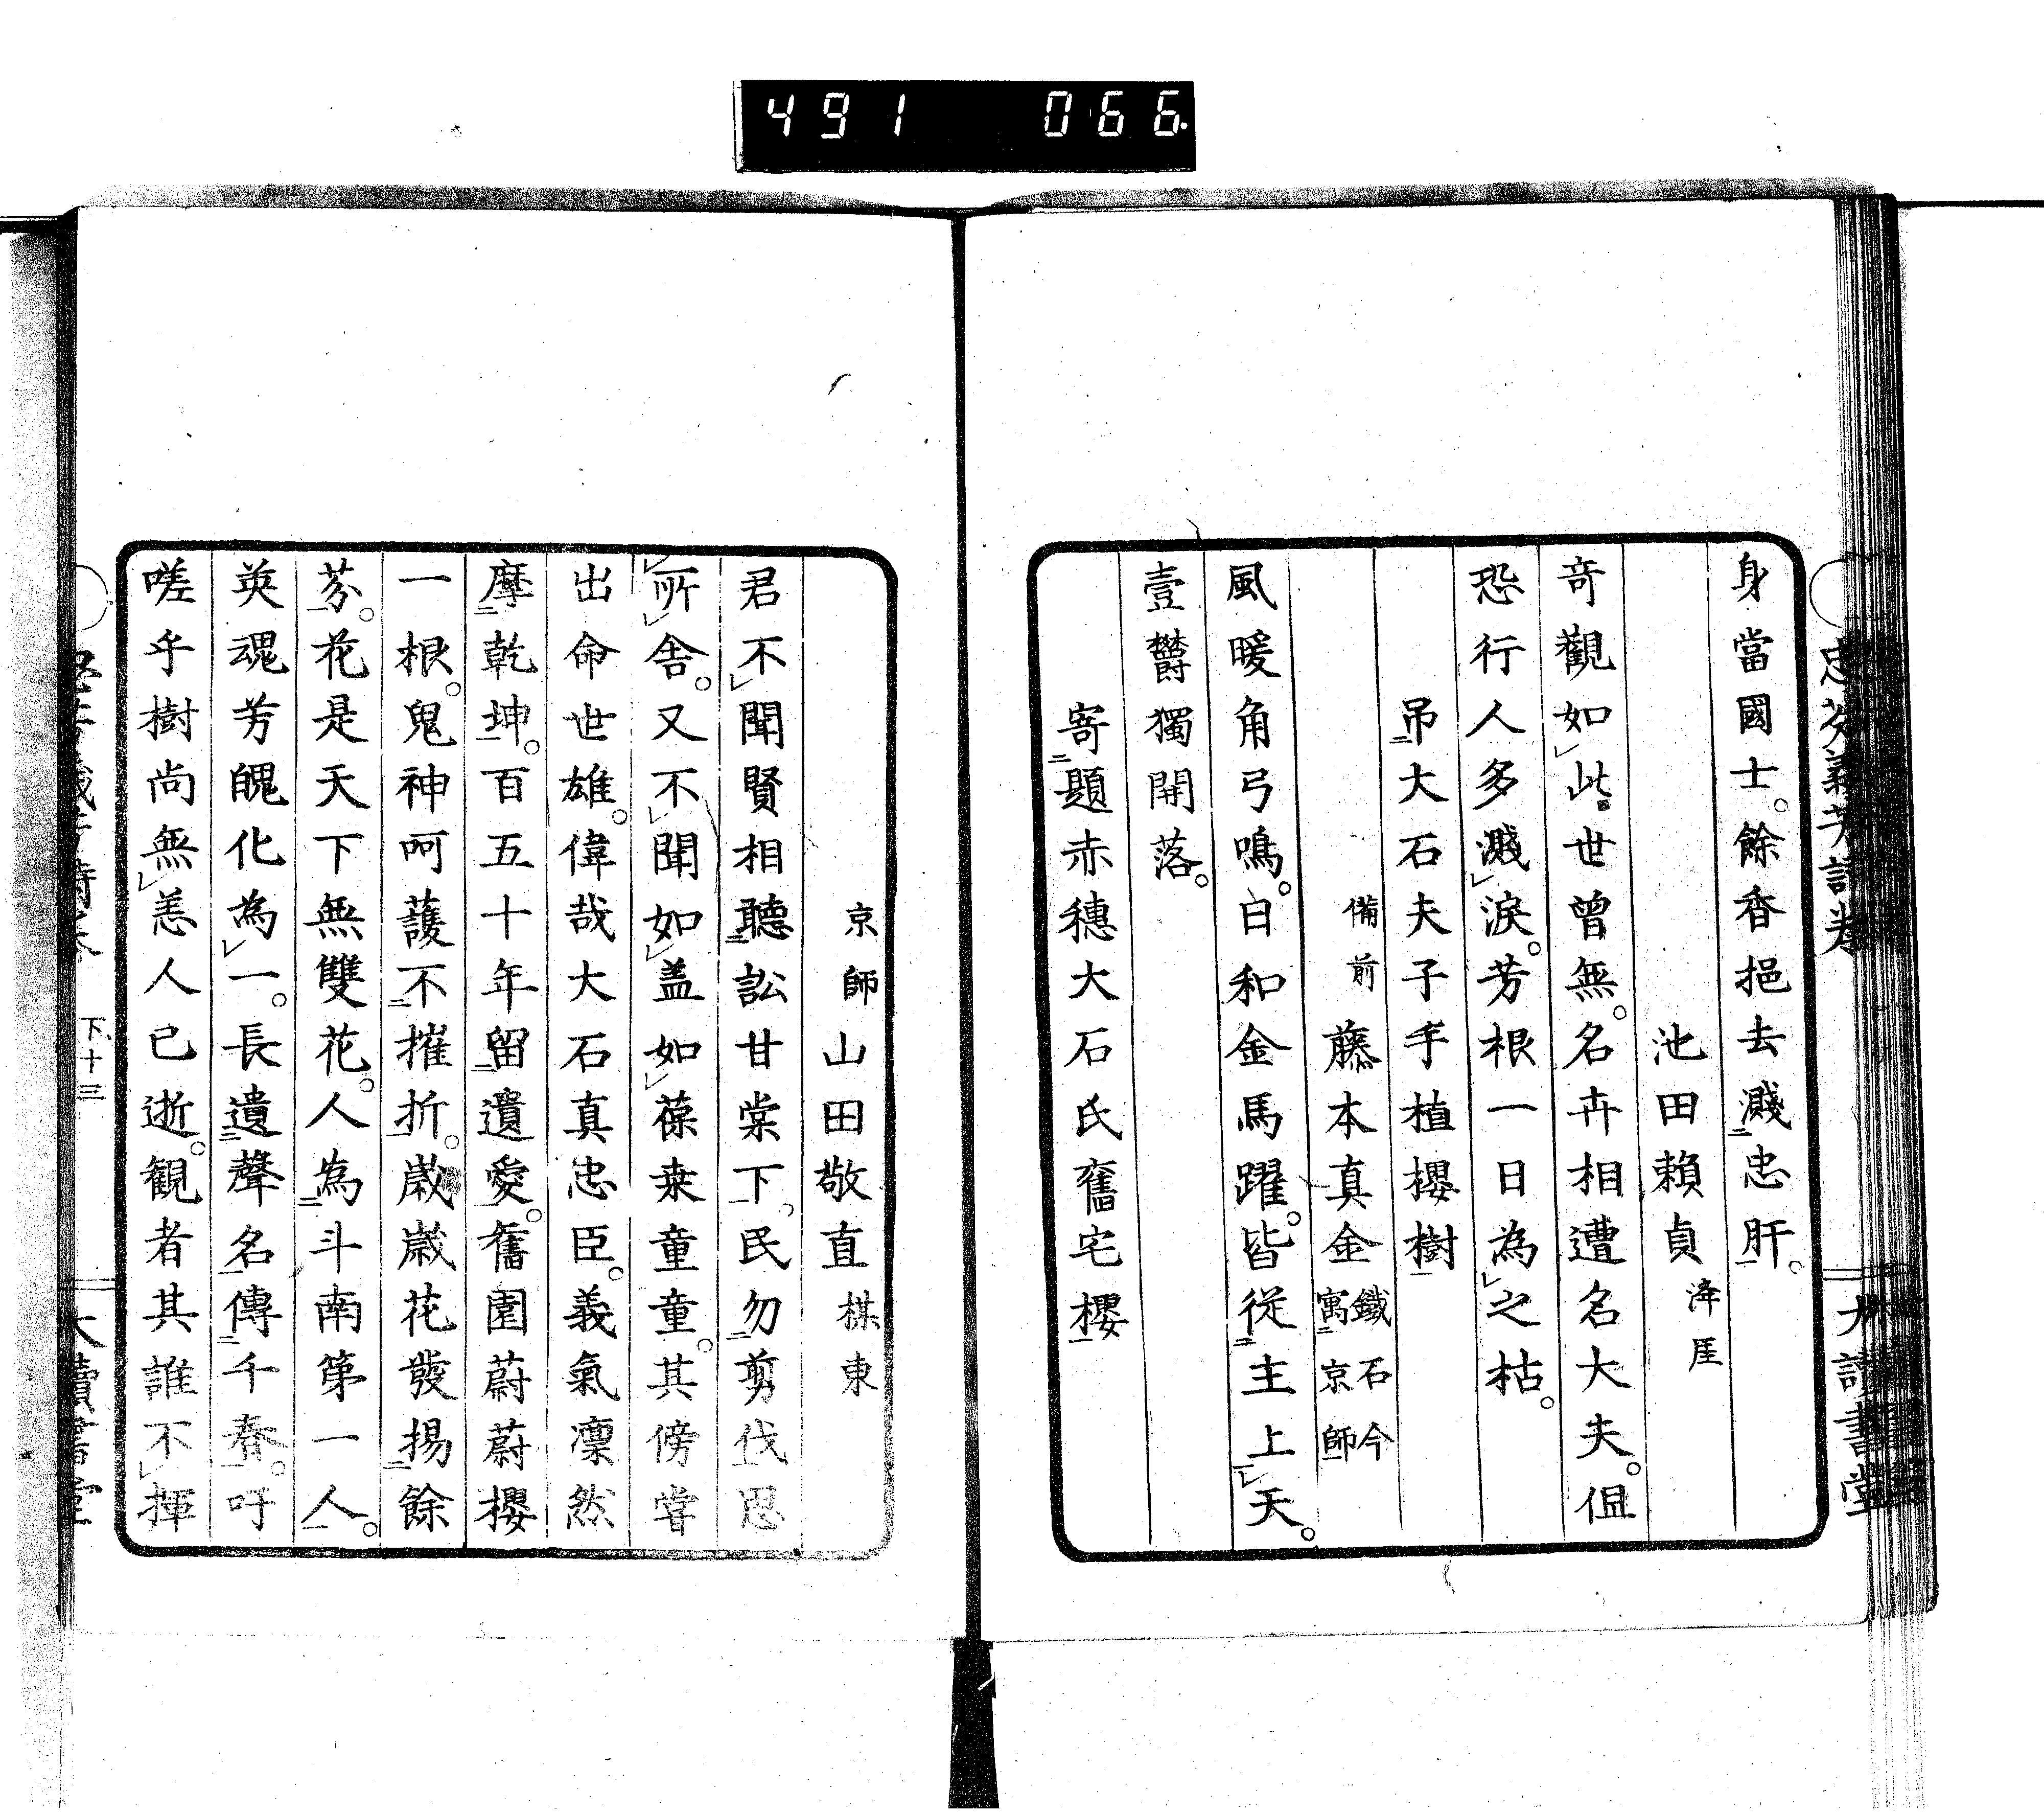 491 066
身當國士。餘香挹去濺忠肝。
池田頼貞 漨厓
奇觀如此。世曾無。名卉相遭名大夫。但
恐行人多濺淚。芳根一日為之枯。
吊大石夫子手植櫻樹
備前 藤本真金 鐵石今寓京師
風暖角弓鳴。白和金馬躍。皆從主上天。
壹欝獨開落。
寄題赤穗大石氏舊宅櫻
京師 山田敬直 楳東
君不聞賢相聽訟甘棠下。民勿剪伐思
所舎。又不聞如盖如葆桒童童。其傍嘗
出命世雄。偉哉大石真忠臣。義氣凛然
摩乾坤。百五十年留遺愛。舊園蔚蔚櫻
一根。鬼神呵護不摧折。歳歳花發揚餘
芬。花是天下無雙花。人為斗南第一人。
英魂芳魄化為一。長遺聲名傳千春。吁
嗟乎樹尚無恙人已逝。観者其誰不揮
下 十三